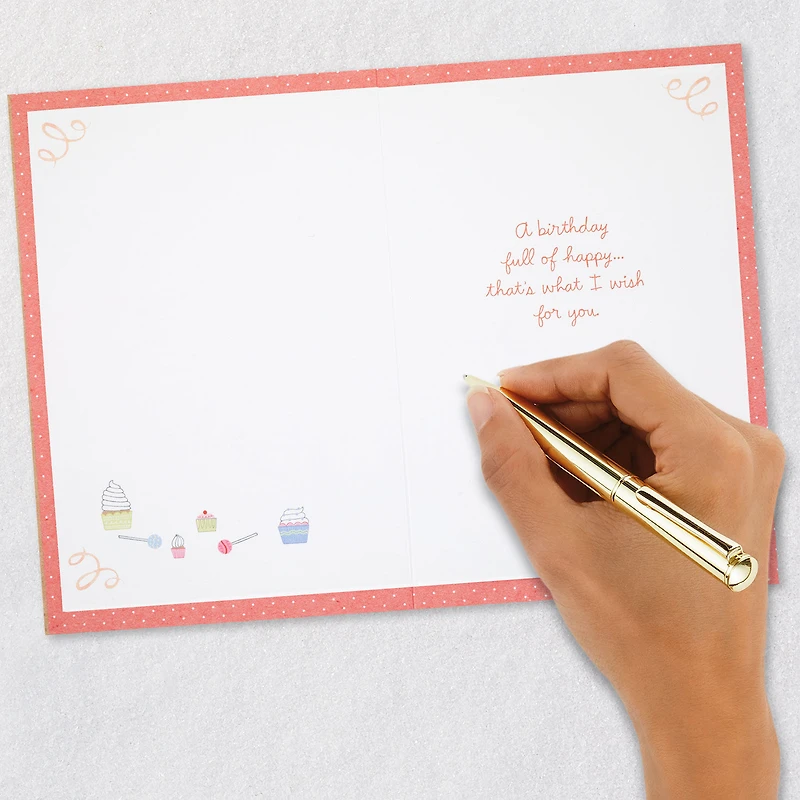 A birthday
full of happy...
that's what I wish
for you.